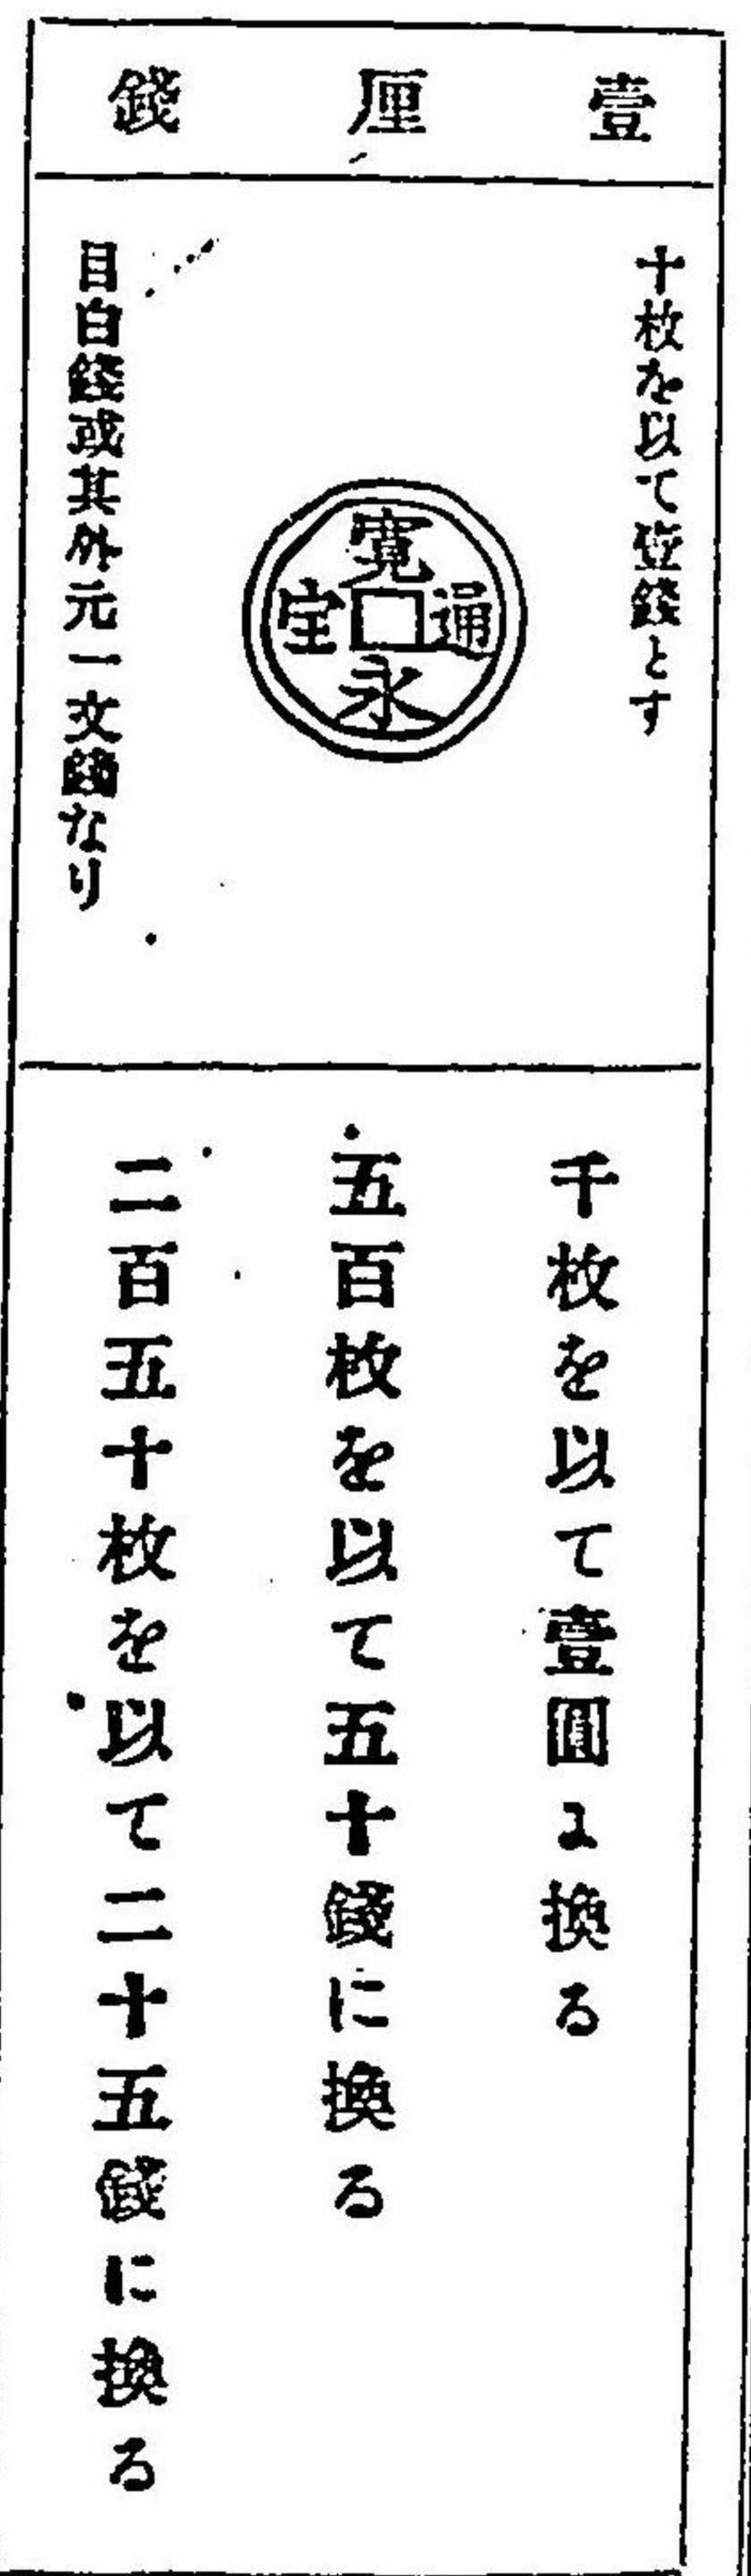 壹厘錢
十枚を以て壹錢とす
寛永通宝
目白錢或其外元一文錢なり
千枚を以て壹圓に換る
五百枚を以て五十錢に換る
二百五十枚を以て二十五錢に換る